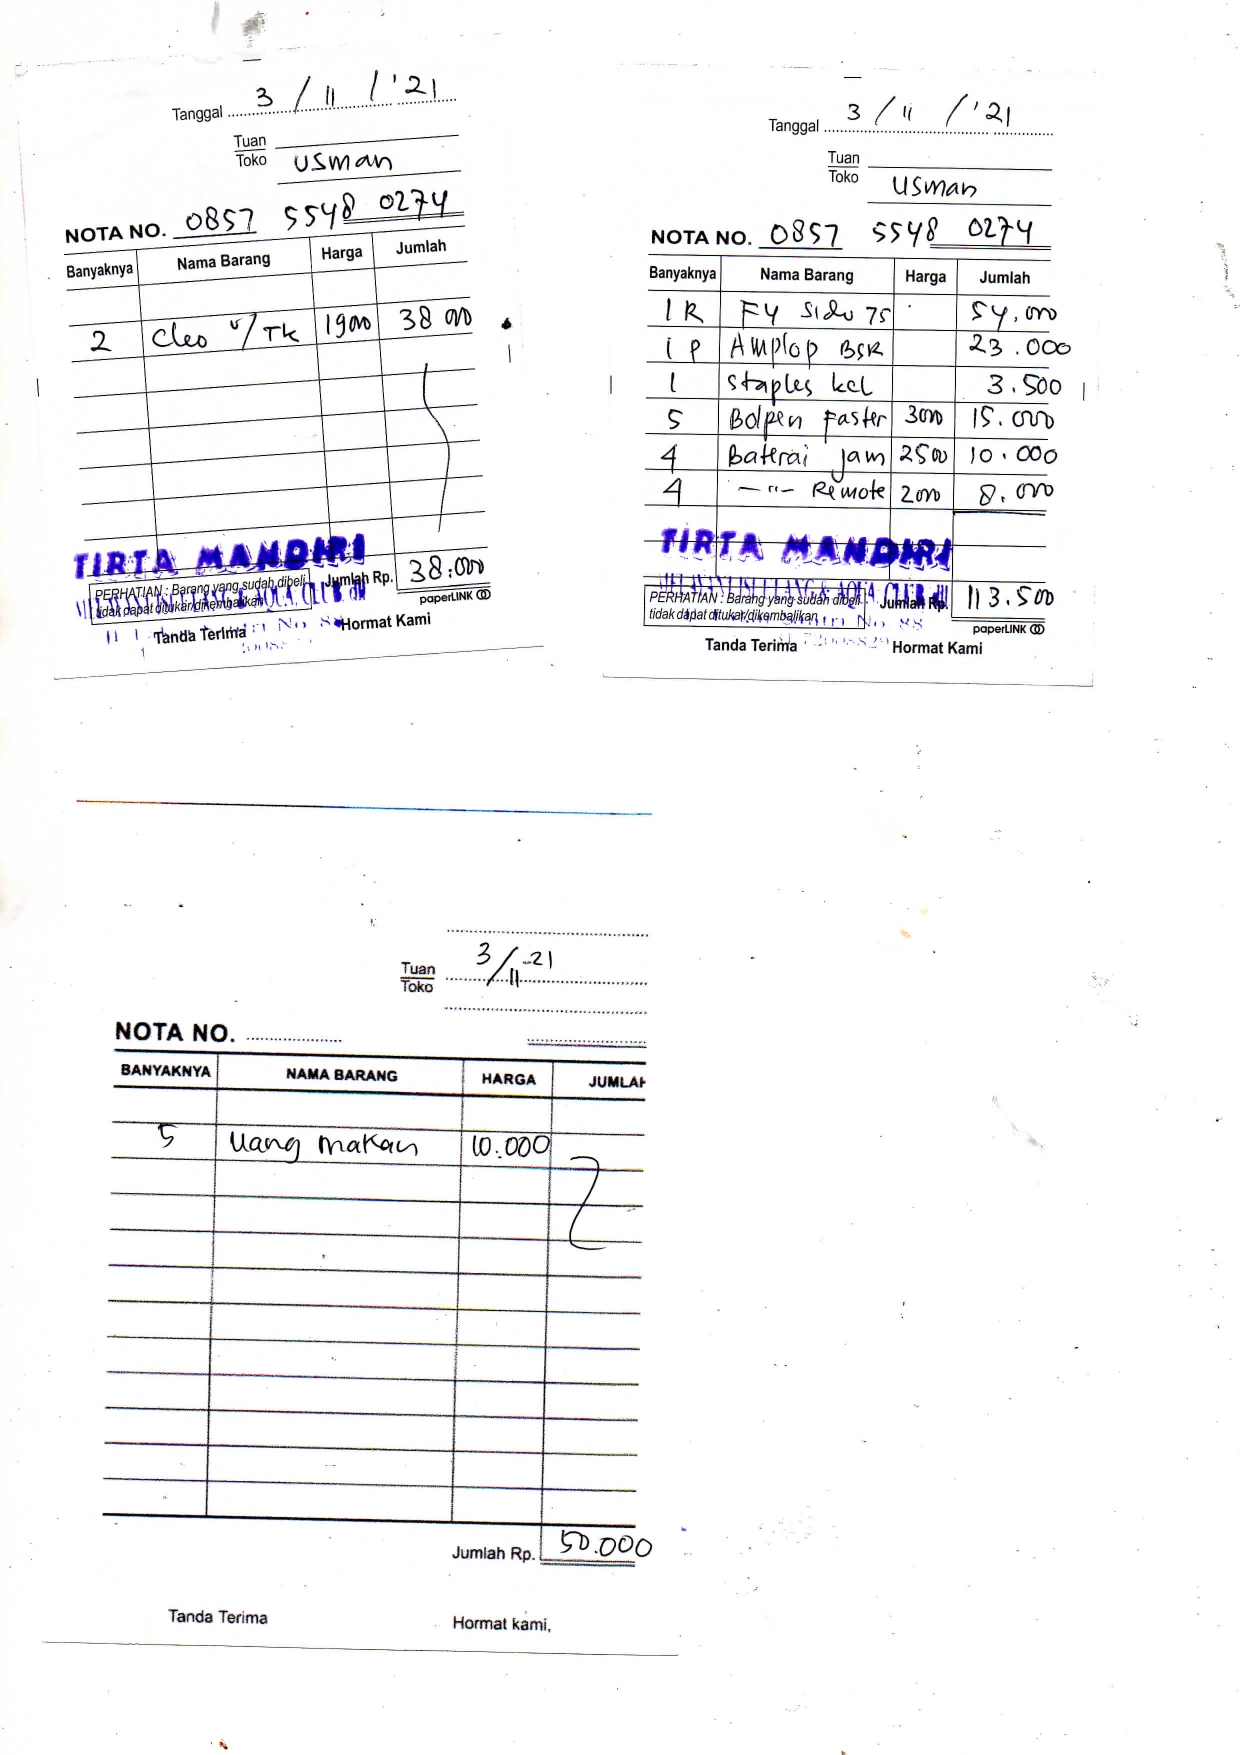 Tanggal 3 / 11 / '21
Tuan
Toko usman
NOTA NO. 0857 5548 0274
Banyaknya Nama Barang Harga Jumlah
2 Cleo 19000 38 000
TIRTA MANDIRI
PERHATIAN : Barang yang sudah dibeli
tidak dapat ditukar/dikembalikan
Jumlah Rp. 38.000
paperLINK
Tanda Terima Hormat Kami
Tanggal 3 / 11 / '21
Tuan
Toko usman
NOTA NO. 0857 5548 0274
Banyaknya Nama Barang Harga Jumlah
1 R F4 Sidu 75 54.000
1 P Amplop BSR 23.000
1 Staples kcl 3.500
5 Bolpen Faster 3000 15.000
4 Baterai jam 2500 10.000
4 —"— Remote 2000 8.000
TIRTA MANDIRI
PERHATIAN : Barang yang sudah dibeli
tidak dapat ditukar/dikembalikan
Jumlah Rp. 113.500
paperLINK
Tanda Terima Hormat Kami
Tuan
Toko 3/11-21
NOTA NO.
BANYAKNYA NAMA BARANG HARGA JUMLAH
5 Uang makan 10.000
Jumlah Rp. 50.000
Tanda Terima Hormat kami,